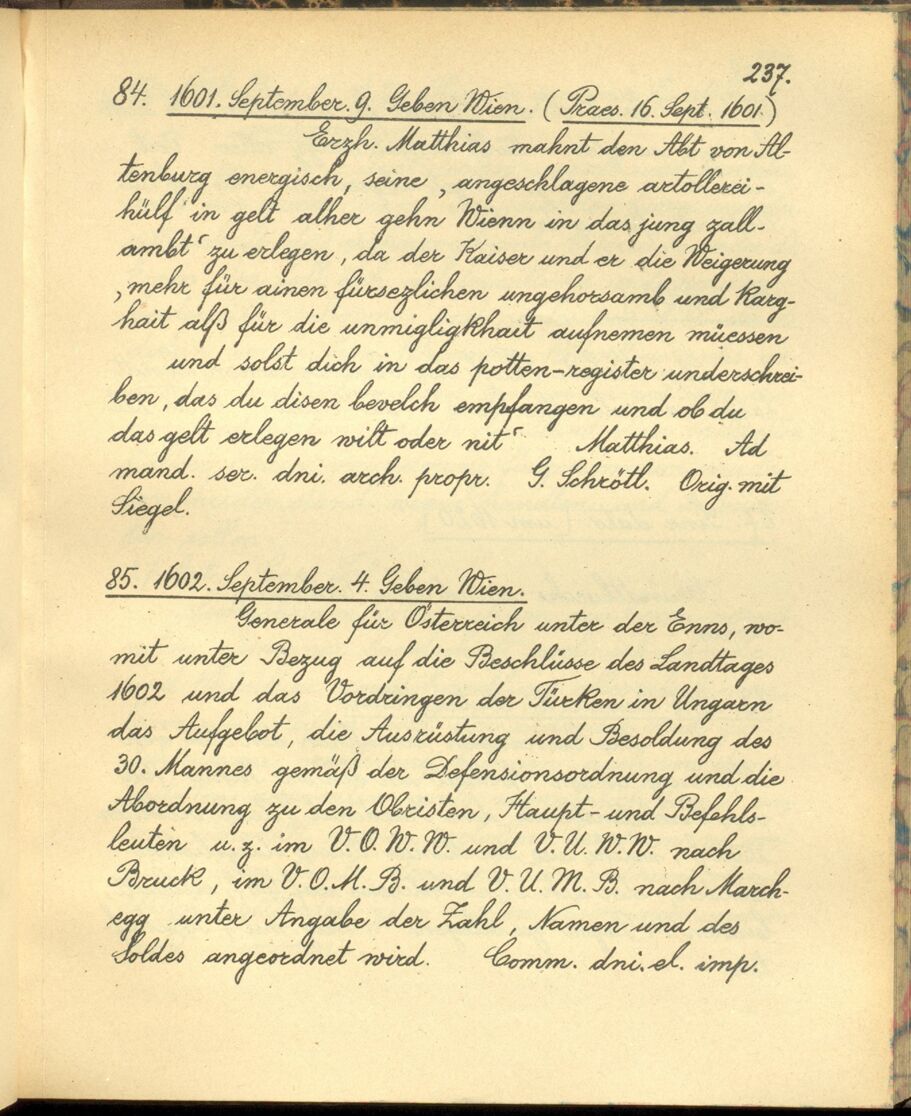 237.
84. 1601. September. 9. Geben Wien. (Praes. 16. Sept. 1601.)
Erzh. Matthias mahnt den Abt von Al-
tenburg energisch, seine ‚angeschlagene artollerei-
hülf in gelt alher gehn Wienn in das jung zall-
ambt‘ zu erlegen, da der Kaiser und er die Weigerung
‚mehr für ainen fürsezlichen ungehorsamb und Karg-
hait alß für die unmigligkhait aufnemen müessen
und solst dich in das potten-register underschrei-
ben, das du disen bevelch empfangen und ob du
das gelt erlegen wilt oder nit‘ Matthias. Ad
mand. ser. dni. arch. propr. G. Schrötl. Orig. mit
Siegel.
85. 1602. September. 4. Geben Wien.
Generale für Österreich unter der Enns, wo-
mit unter Bezug auf die Beschlüsse des Landtages
1602 und das Vordringen der Türken in Ungarn
das Aufgebot, die Ausrüstung und Besoldung des
30. Mannes gemäß der Defensionsordnung und die
Abordnung zu den Obristen, Haupt- und Befehls-
leuten u. z. im V. O. W. W. und V. U. W. W. nach
Bruck, im V. O. M. B. und V. U. M. B. nach March-
egg unter Angabe der Zahl, Namen und des
Soldes angeordnet wird. Comm. dni. el. imp.